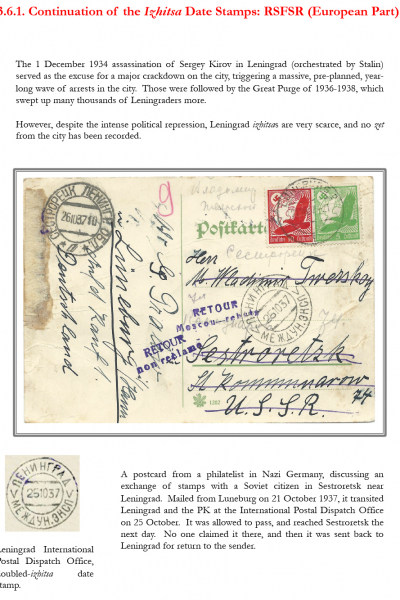 3.6.1. Continuation of the Izhitsa Date Stamps: RSFSR (European Part)
The 1 December 1934 assassination of Sergey Kirov in Leningrad (orchestrated by Stalin)
served as the excuse for a major crackdown on the city, triggering a massive, pre-planned, year-
long wave of arrests in the city. Those were followed by the Great Purge of 1936-1938, which
swept up many thousands of Leningraders more.
However, despite the intense political repression, Leningrad izhitsas are very scarce, and no zet
from the city has been recorded.
26103710
Postkarte
Herrn
Wladimir Twerskoy
RETOUR
Moscou-rebuts
RETOUR
non réclamé
Lüneburg
Deutschland
ЛЕНИНГРАД
261037
МЕЖДУН.ЭКСП
Sestroretsk
St Kommunarow
74
U.S.S.R.
ЛЕНИНГРАД
251037
МЕЖДУН.ЭКСП
Leningrad International
Postal Dispatch Office,
doubled-izhitsa date
stamp.
A postcard from a philatelist in Nazi Germany, discussing an
exchange of stamps with a Soviet citizen in Sestroretsk near
Leningrad. Mailed from Luneburg on 21 October 1937, it transited
Leningrad and the PK at the International Postal Dispatch Office
on 25 October. It was allowed to pass, and reached Sestroretsk the
next day. No one claimed it there, and then it was sent back to
Leningrad for return to the sender.